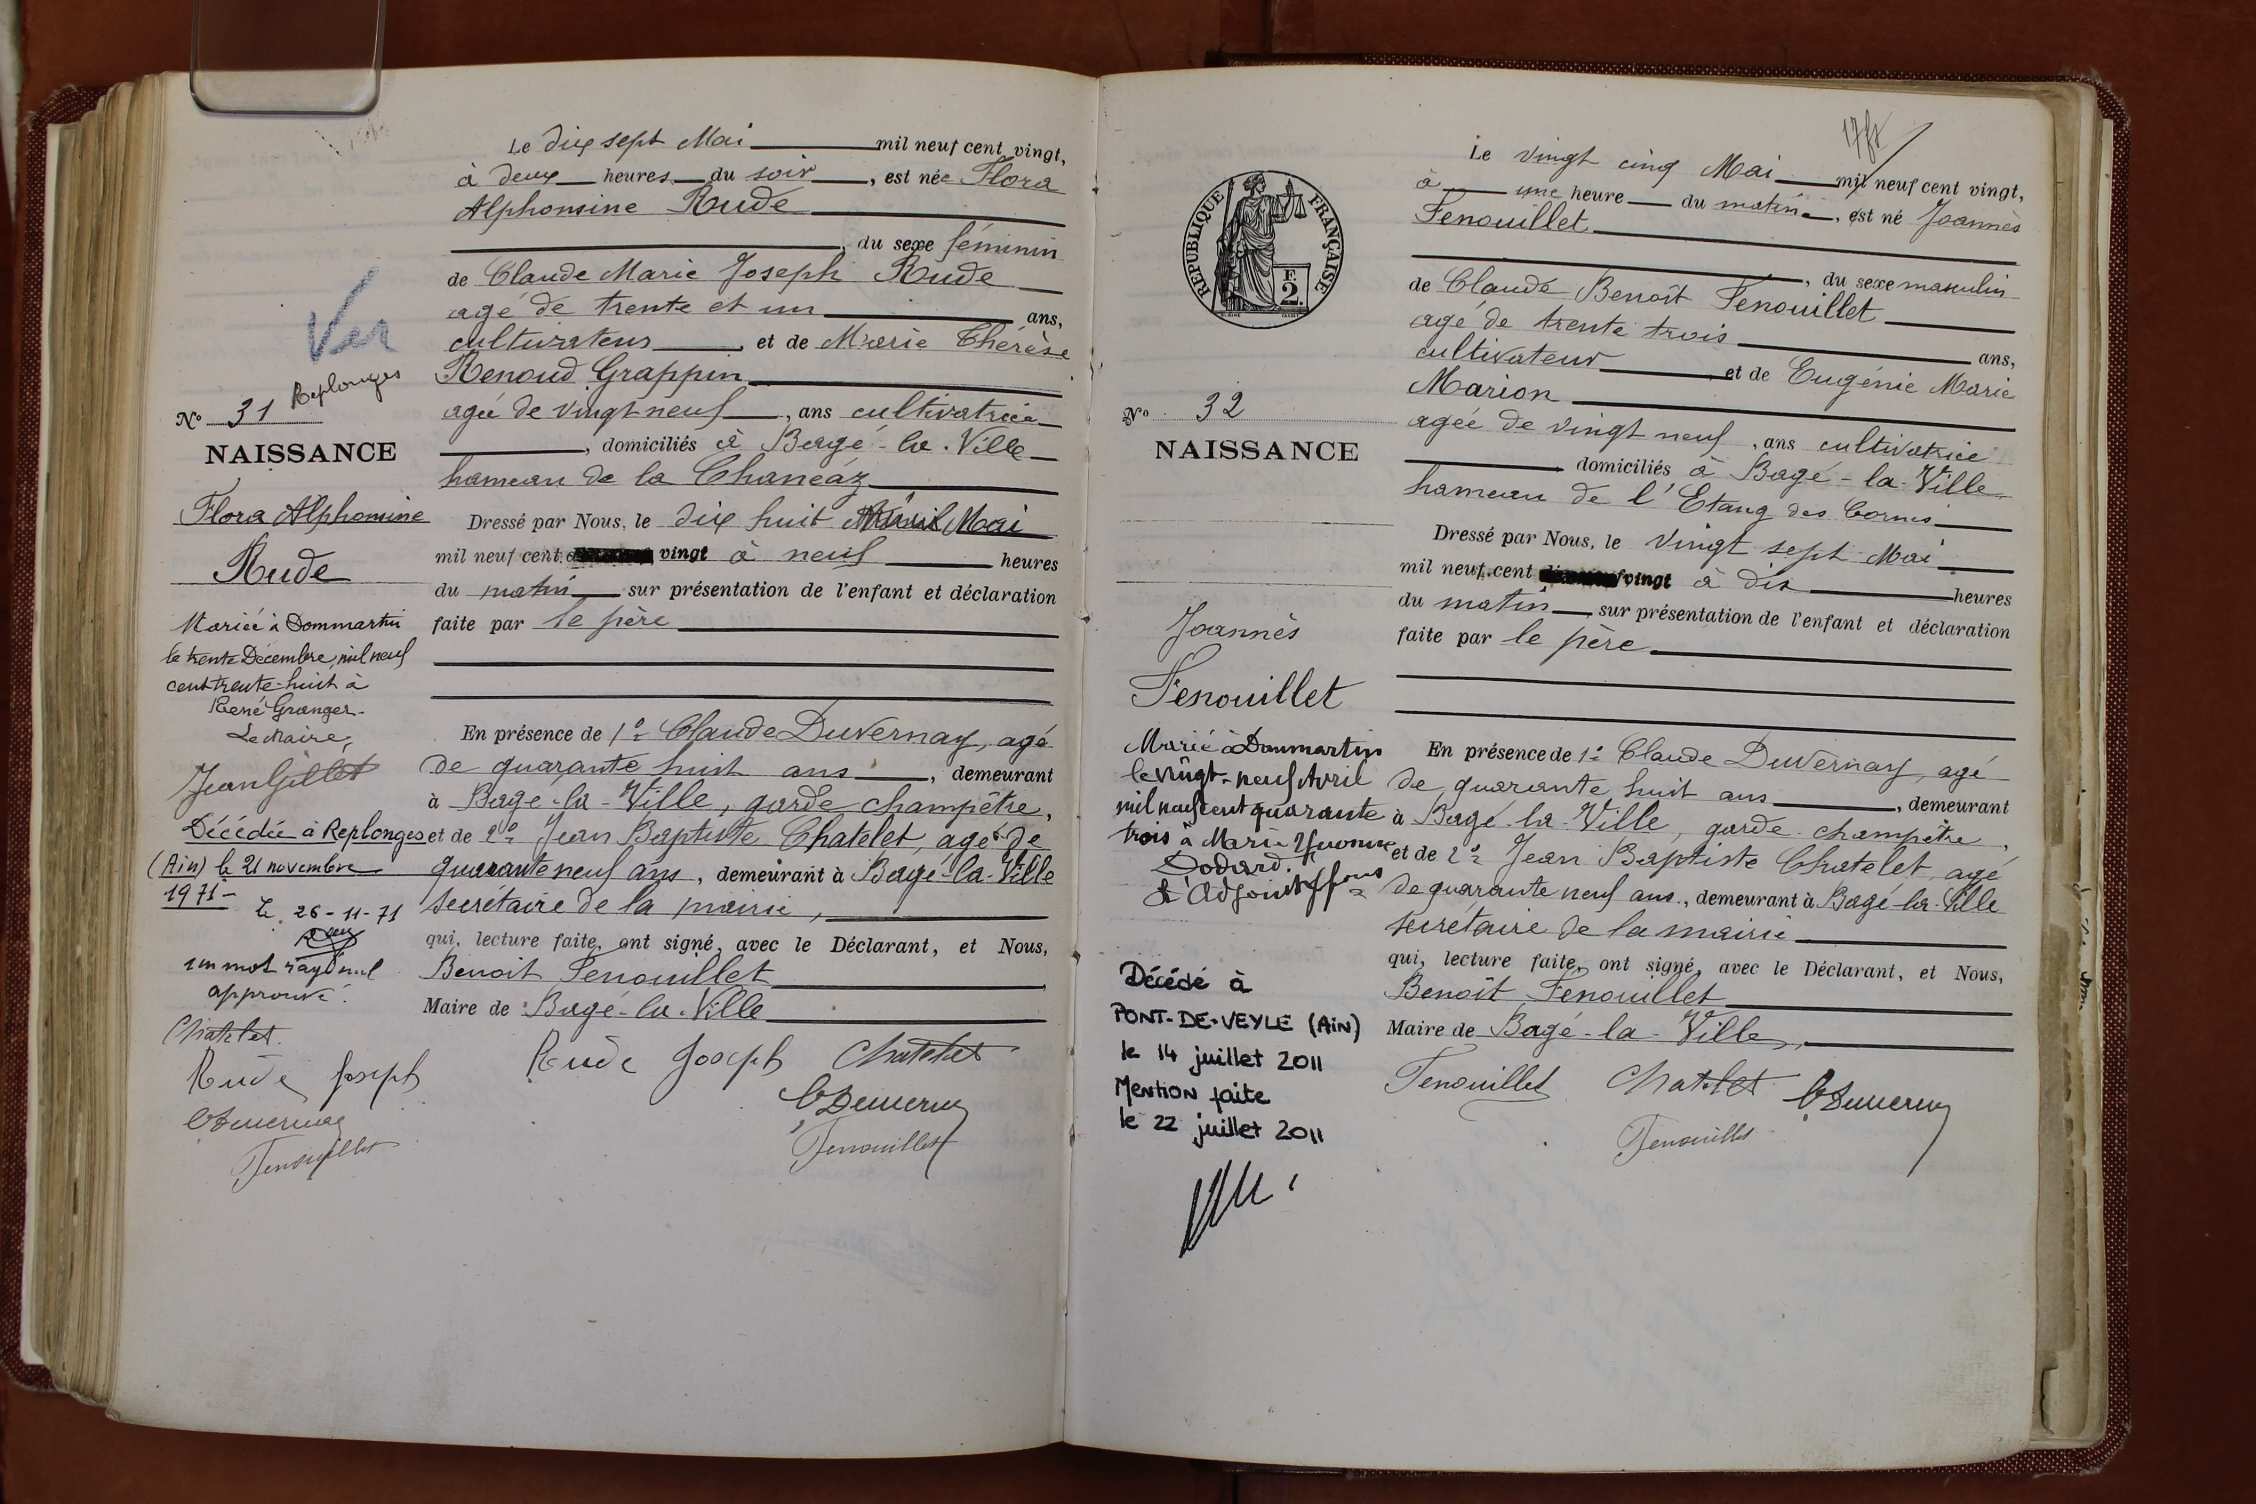 Le dix sept Mai mil neuf cent vingt,
à deux heures du soir, est née Flora
Alphonsine Rude
, du sexe féminin
de Claude Marie Joseph Rude
agé de trente et un ans,
cultivateur, et de Marie Thérèse
Renoud Grappin
agée de vingt neuf, ans cultivatrice
, domiciliés à Bagé-la-Ville
hameau de la Chanéaz
Dressé par Nous, le dix huit Mai
mil neuf cent vingt à neuf heures
du matin sur présentation de l'enfant et déclaration
faite par le père
En présence de 1º Claude Duvernay, agé
de quarante huit ans, demeurant
à Bagé-la-Ville, garde champêtre,
et de 2º Jean Baptiste Chatelet, agé de
quarante neuf ans, demeurant à Bagé-la-Ville
secrétaire de la mairie,
qui, lecture faite, ont signé, avec le Déclarant, et Nous,
Benoit Fenouillet
Maire de Bagé-la-Ville
Rude Joseph Chatelet
Cl Duvernay
Fenouillet
Ver
Replonges
Nº 31
NAISSANCE
Flora Alphonsine
Rude
Mariée à Dommartin
le trente Décembre, mil neuf
cent trente-huit à
René Granger.
Le Maire,
Jean Gillet
Décédée à Replonges
(Ain) le 21 novembre
1971-
Le 26-11-71
un mot rayé nul
approuvé.
Chatelet.
Rude Joseph
Cl Duvernay
Fenouillet
17 fx
Le vingt cinq Mai mil neuf cent vingt,
à une heure du matin, est né Joannès
Fenouillet
, du sexe masculin
de Claude Benoît Fenouillet
agé de trente trois ans,
cultivateur et de Eugénie Marie
Marion
agée de vingt neuf, ans cultivatrice
domiciliés à Bagé-la-Ville
hameau de l'Etang des Cornes
Dressé par Nous, le vingt sept Mai
mil neuf cent vingt à dix heures
du matin, sur présentation de l'enfant et déclaration
faite par le père
En présence de 1º Claude Duvernay, agé
de quarante huit ans, demeurant
à Bagé-la-Ville, garde-champêtre,
et de 2º Jean Baptiste Chatelet, agé
de quarante neuf ans, demeurant à Bagé-la-Ville
secrétaire de la mairie
qui, lecture faite, ont signé, avec le Déclarant, et Nous,
Benoît Fenouillet
Maire de Bagé-la-Ville,
Fenouillet Chatelet Cl Duvernay
Fenouillet
REPUBLIQUE FRANÇAISE
F.
2.
Nº 32
NAISSANCE
Joannès
Fenouillet
Marié à Dommartin
le vingt-neuf Avril
mil neuf cent quarante
trois à Marie Yvonne
Dodard.
L'Adjoint
Décédé à
PONT-DE-VEYLE (AiN)
le 14 juillet 2011
Mention faite
le 22 juillet 2011